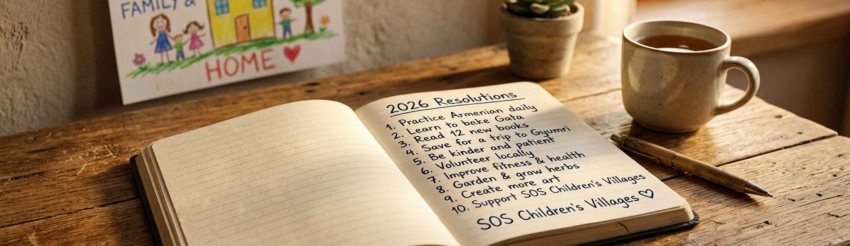 FAMILY &
HOME
2026 Resolutions
1. Practice Armenian daily
2. Learn to bake Gata
3. Read 12 new books
4. Save for a trip to Gyumri
5. Be kinder and patient
6. Volunteer locally
7. Improve fitness & health
8. Garden & grow herbs
9. Create more art
10. Support SOS Children's Villages
SOS Children's Villages ♡